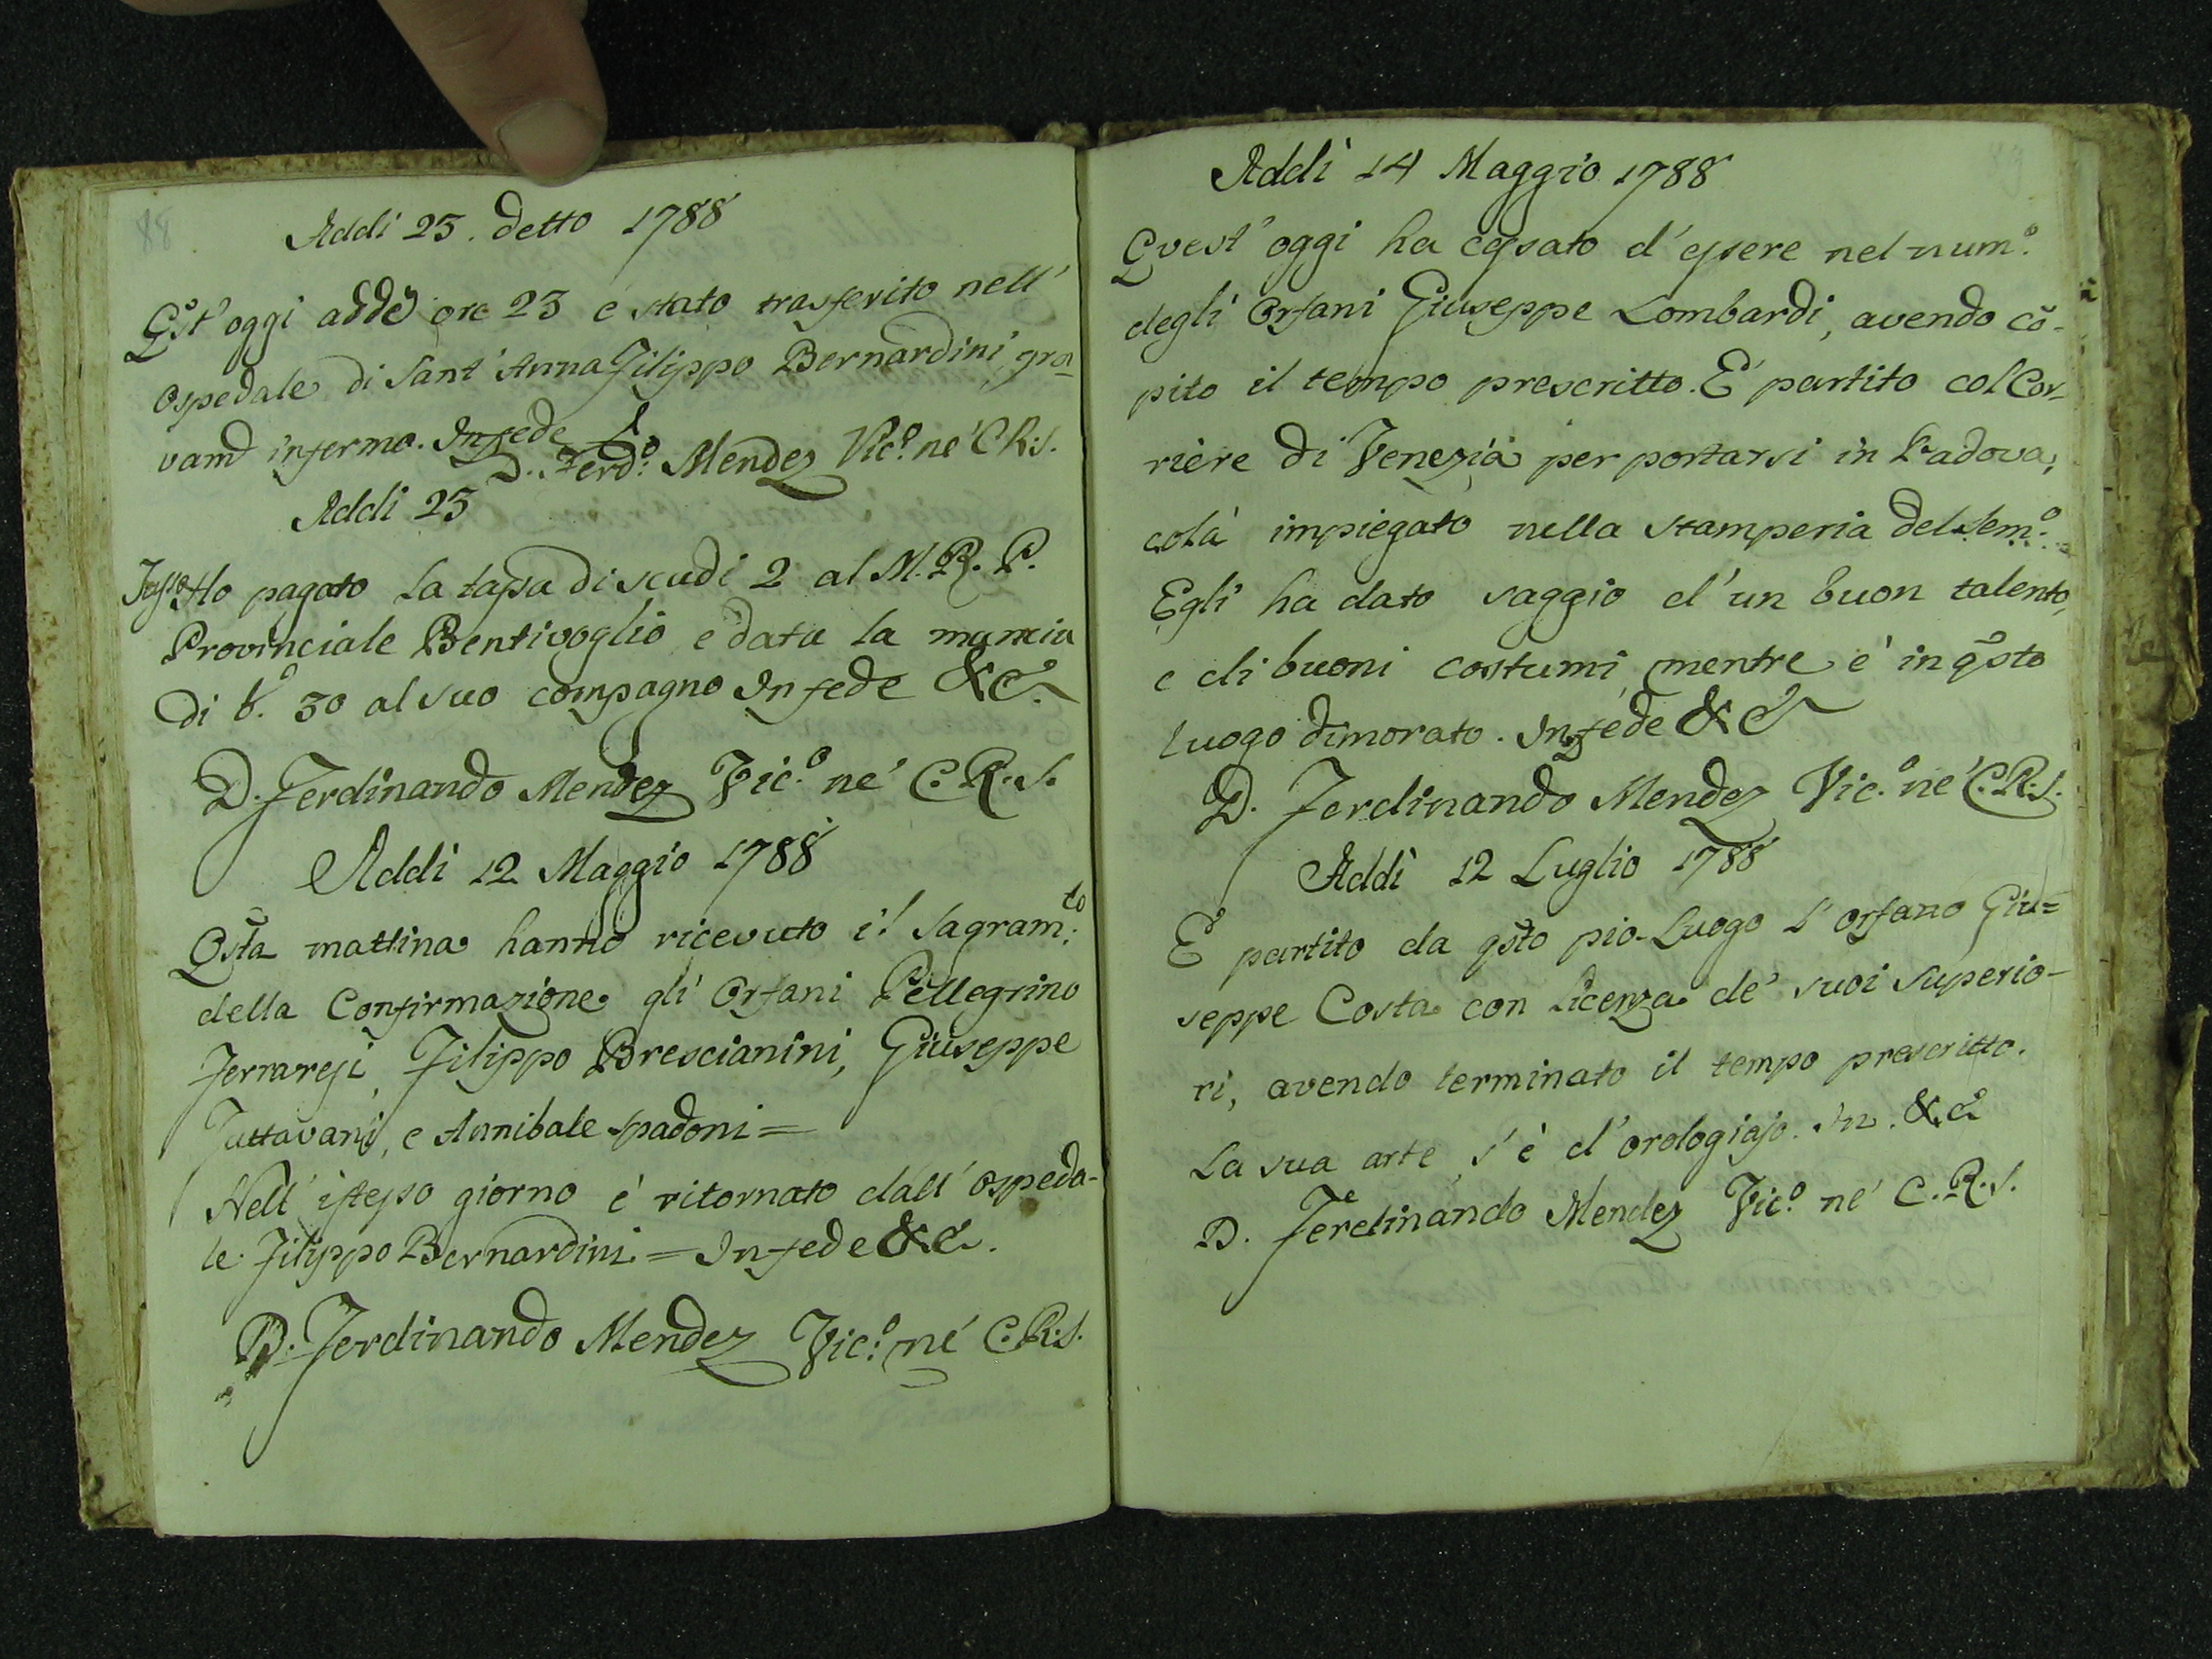 88
Addi 23. detto 1788
Qst' oggi alle ore 23 è stato trasferito nell'
Ospedale di Sant' Anna Filippo Bernardini, gra=
vamē infermo. In fede
D. Ferd.º Mendez Vic.º ne' C.R.S.
Addi 23
Tassa Ho pagato la tassa di scudi 2 al M. R. P.
Provinciale Bentivoglio, e data la mancia
di b.º 30 al suo compagno In fede &c.
D. Ferdinando Mendez Vic.º ne' C.R.S.
Addi 12 Maggio 1788
Qsta mattina hanno ricevuto il Sagram.to
della Confirmazione gli Orfani Pellegrino
Ferraresi, Filippo Brescianini, Giuseppe
Tuttavani, e Annibale Spadoni =
Nell' istesso giorno è ritornato dall' Ospeda-
le Filippo Bernardini = In fede &c.
D. Ferdinando Mendez Vic.º ne' C.R.S.
Addì 14 Maggio 1788
Quest' oggi ha cessato d' essere nel num.º
degli Orfani Giuseppe Lombardi, avendo cō-
pito il tempo prescritto. E' partito col Cor-
riere di Venezia per portarsi in Padova,
colà impiegato nella stamperia del Sem.º
Egli ha dato saggio d' un buon talento,
e di buoni costumi, mentre è in qsto
luogo dimorato. In fede &c
D. Ferdinando Mendez Vic.º ne' C.R.S.
Addì 12 Luglio 1788
E' partito da qsto pio Luogo l' orfano Giu=
seppe Costa con licenza de' suoi Superio-
ri, avendo terminato il tempo prescritto.
La sua arte s' è d' orologiajo. In. &c
D. Ferdinando Mendez Vic.º ne' C.R.S.